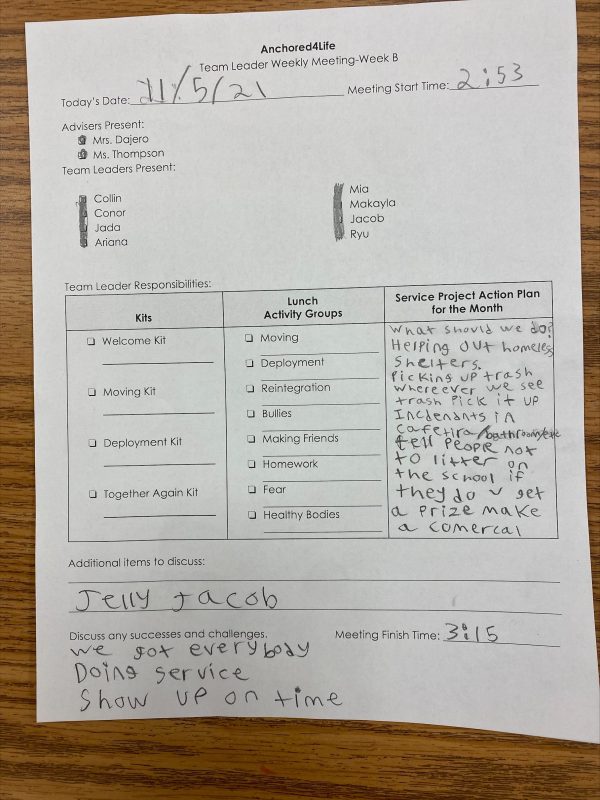 Anchored4Life
Team Leader Weekly Meeting-Week B
Today's Date: 11/5/21 Meeting Start Time: 2:53
Advisers Present:
Mrs. Dajero
Ms. Thompson
Team Leaders Present:
Collin
Conor
Jada
Ariana
Mia
Makayla
Jacob
Ryu
Team Leader Responsibilities:
Kits
Welcome Kit
Moving Kit
Deployment Kit
Together Again Kit
Lunch
Activity Groups
Moving
Deployment
Reintegration
Bullies
Making Friends
Homework
Fear
Healthy Bodies
Service Project Action Plan
for the Month
What should we do?
Helping out homeless
shelters.
Picking up trash
whereever we see
trash Pick it up
Incdenants in
cafetira/bathroom/etc
tell People not
to litter on
the school if
they do v get
a prize make
a comercal
Additional items to discuss:
Jelly Jacob
Discuss any successes and challenges. Meeting Finish Time: 3:15
we got everybody
Doing service
Show up on time